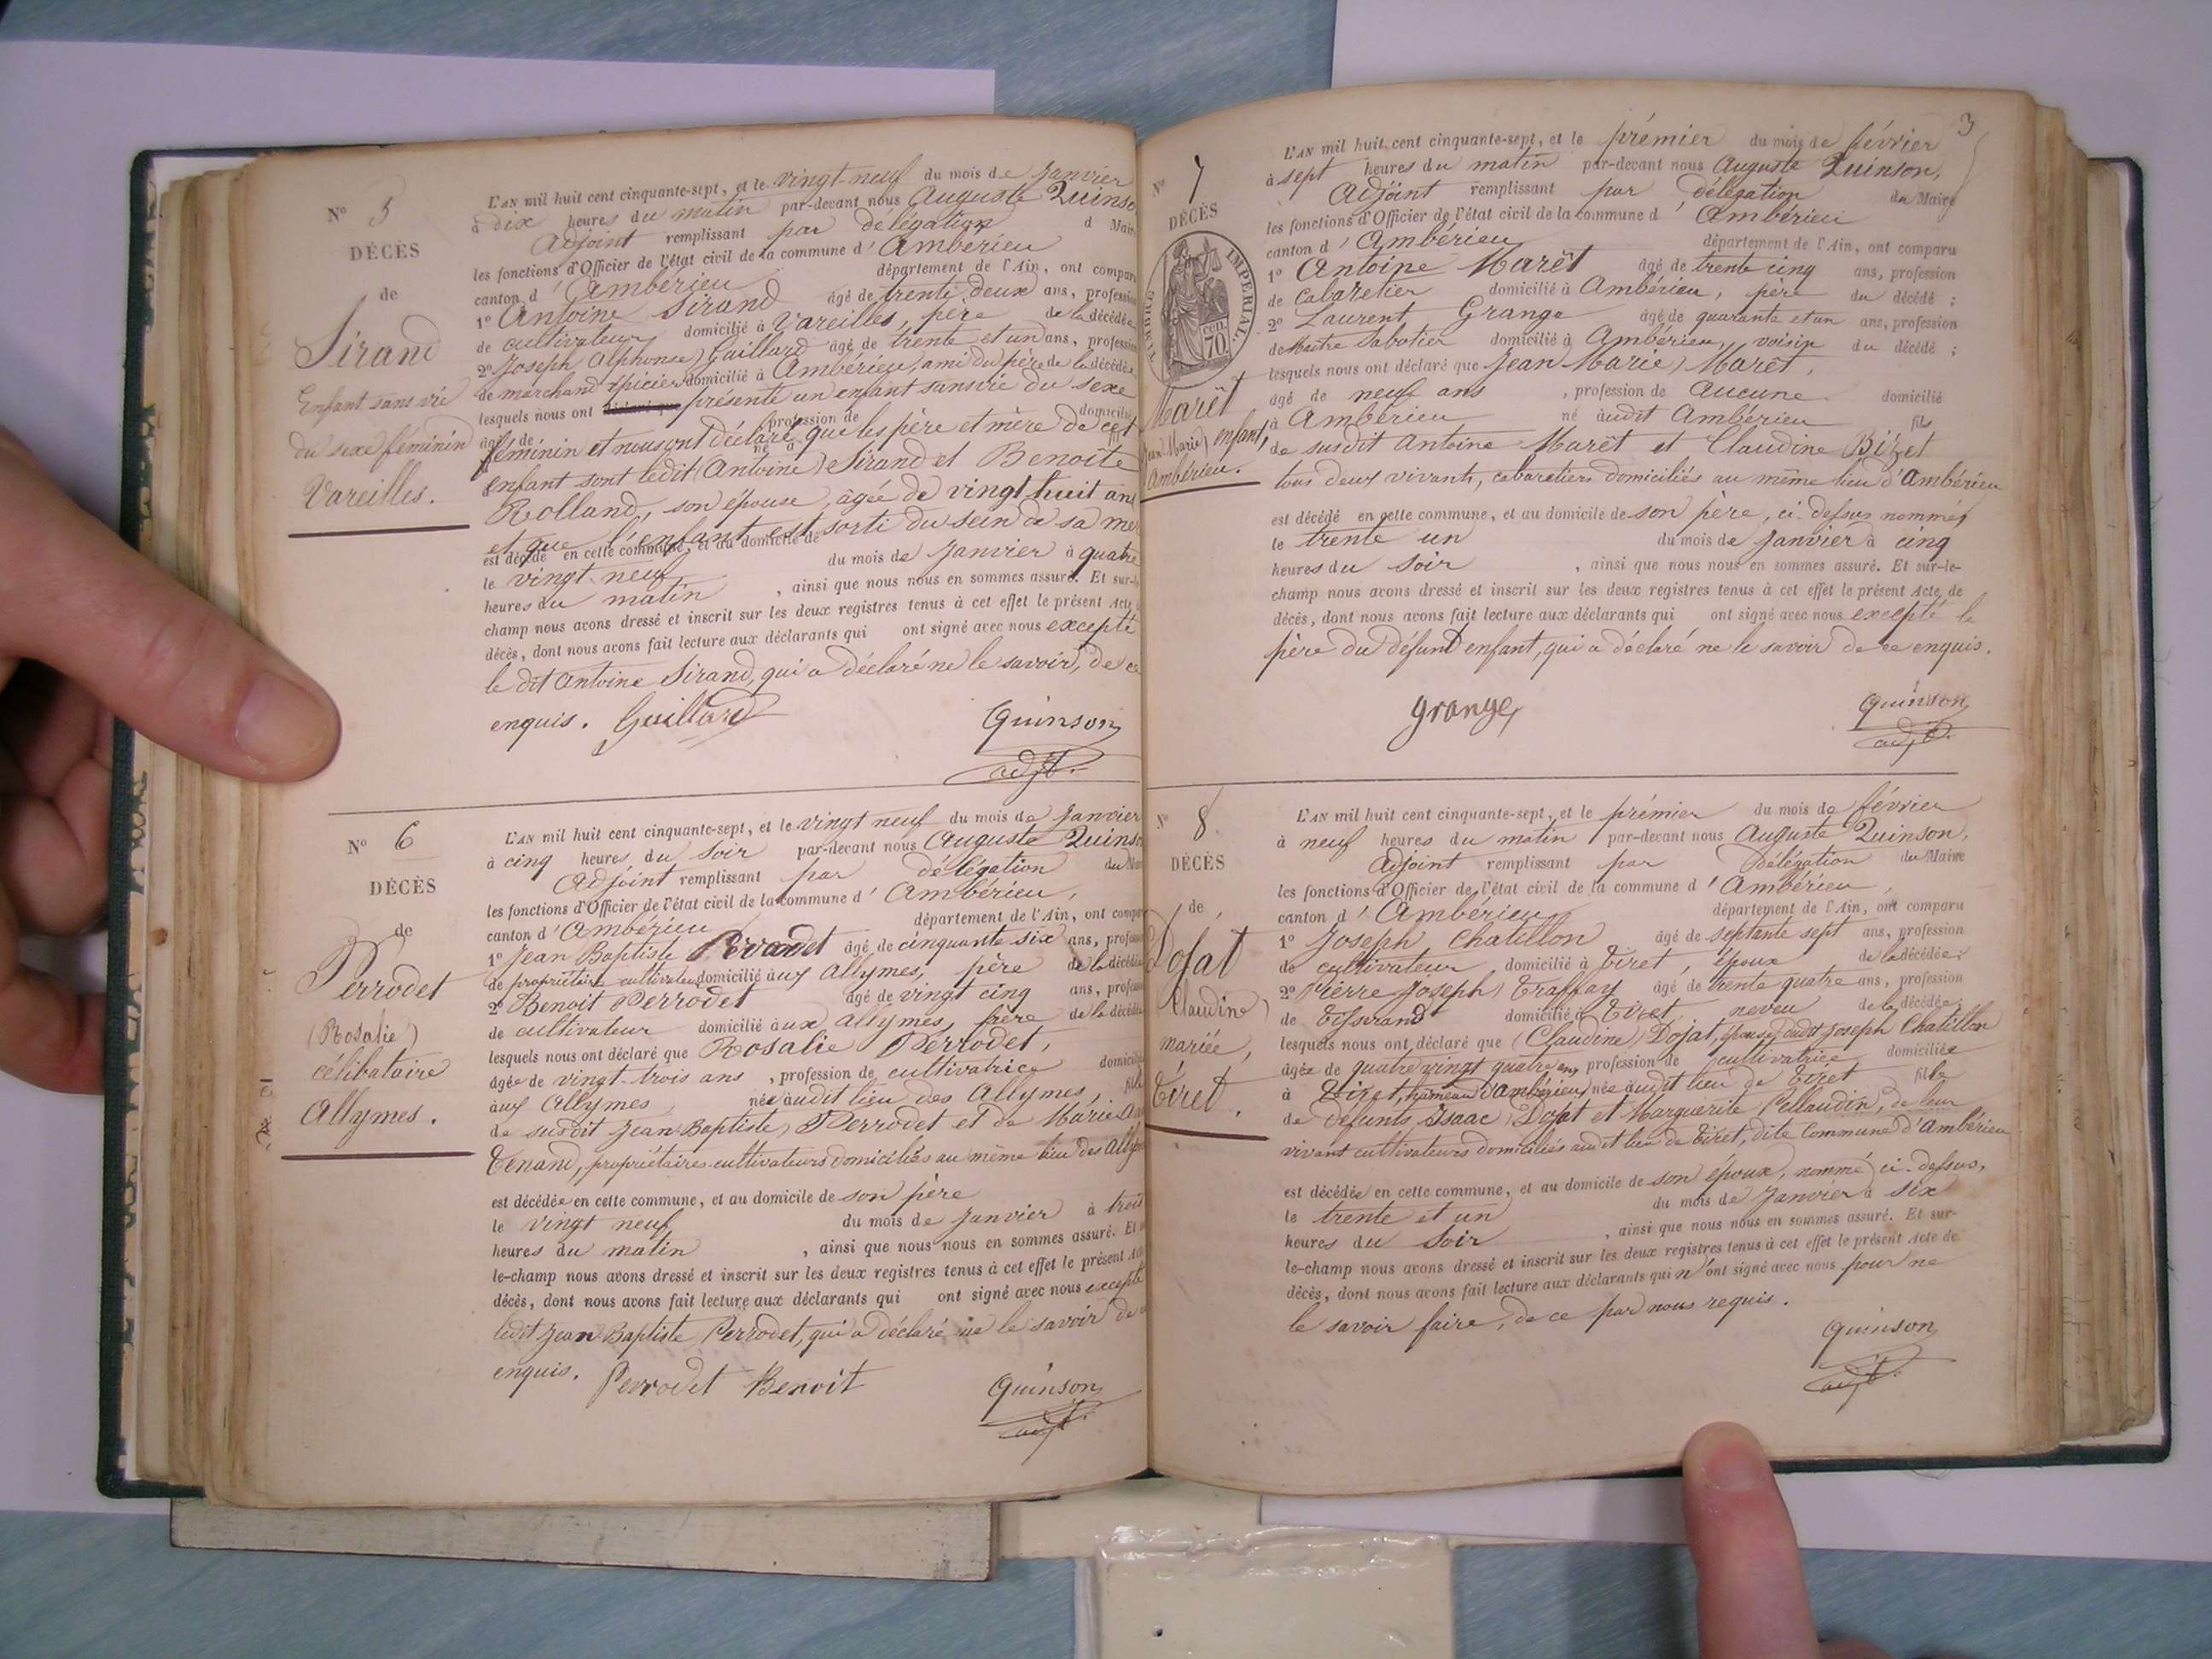 N° 5
DÉCÈS
de
Sirand
Enfant sans vie
du sexe féminin
Vareilles.
L'AN mil huit cent cinquante-sept, et le vingt-neuf du mois de Janvier
à dix heures du matin par-devant nous Auguste Quinso
Adjoint remplissant par délégation d Mair
les fonctions d'Officier de l'état civil de la commune d'Ambérieu
canton d'Ambérieu département de l'Ain, ont compar
1° Antoine Sirand âgé de trente deux ans, professi
de cultivateur domicilié à Vareilles, père de la décédée
2° Joseph Alphonse) Gaillard âgé de trente et un ans, profession
de marchand épicier domicilié à Ambérieu, ami du père de la décédée
lesquels nous ont présenté un enfant sans vie du sexe
âgé de profession de domicilié
féminin et nous ont déclaré que les père et mère de cet
né à fil
enfant sont ledit (Antoine) Sirand et Benoîte
Rolland, son épouse, âgée de vingt huit ans
et que l'enfant est sorti du sein de sa mè
est décédé en cette commune, et au domicile de
le vingt-neuf du mois de Janvier à quatre
heures du matin, ainsi que nous nous en sommes assuré. Et sur-le-
champ nous avons dressé et inscrit sur les deux registres tenus à cet effet le présent Acte
décès, dont nous avons fait lecture aux déclarants qui ont signé avec nous excepté
le dit Antoine Sirand, qui a déclaré ne le savoir, de ce
enquis. Guillard Quinson
adjt.
N° 6
DÉCÈS
de
Perrodet
(Rosalie)
célibataire
Allymes.
L'AN mil huit cent cinquante-sept, et le vingt neuf du mois de Janvier
à cinq heures du soir par-devant nous Auguste Quinso
Adjoint remplissant par délégation du Mai
les fonctions d'Officier de l'état civil de la commune d'Ambérieu,
canton d'Ambérieu département de l'Ain, ont compar
1° Jean Baptiste Perrodet âgé de cinquante six ans, profess
de propriétaire cultivateur domicilié aux Allymes, père de la décédée
2° Benoit Perrodet âgé de vingt cinq ans, profess
de cultivateur domicilié aux Allymes, frère de la décédée
lesquels nous ont déclaré que Rosalie Perrodet,
âgée de vingt-trois ans, profession de cultivatrice domicili
aux Allymes née audit lieu des Allymes, fille
de susdit Jean Baptiste) Perrodet et de Marie
Tenand, propriétaires-cultivateurs domiciliés au même lieu des Allym
est décédée en cette commune, et au domicile de son père
le vingt neuf du mois de Janvier à trois
heures du matin, ainsi que nous nous en sommes assuré. Et
le-champ nous avons dressé et inscrit sur les deux registres tenus à cet effet le présent Acte
décès, dont nous avons fait lecture aux déclarants qui ont signé avec nous excepté
ledit Jean Baptiste Perrodet, qui a déclaré ne le savoir de
enquis. Perrodet Benoit Quinson
adjt.
3
N° 7
DÉCÈS
TIMBRE IMPÉRIAL
70 cen.
Marêt
Jean Marie) enfant,
Ambérieu.
L'AN mil huit cent cinquante-sept, et le prémier du mois de février
à sept heures du matin par-devant nous Auguste Quinson,
Adjoint remplissant par délégation du Maire
les fonctions d'Officier de l'état civil de la commune d'Ambérieu
canton d'Ambérieu département de l'Ain, ont comparu
1° Antoine Marêt âgé de trente cinq ans, profession
de cabaretier domicilié à Ambérieu, père du décédé ;
2° Laurent Grange âgé de quarante et un ans, profession
de Maître Sabotier domicilié à Ambérieu, voisin du décédé ;
lesquels nous ont déclaré que Jean Marie) Marêt,
âgé de neuf ans, profession de aucune domicilié
à Ambérieu né audit Ambérieu fils
de susdit Antoine Marêt et Claudine Bizet
tous deux vivants, cabaretiers domiciliés au même lieu d'Ambérieu
est décédé en cette commune, et au domicile de son père, ci-dessus nommé,
le trente un du mois de Janvier à cinq
heures du soir, ainsi que nous nous en sommes assuré. Et sur-le-
champ nous avons dressé et inscrit sur les deux registres tenus à cet effet le présent Acte de
décès, dont nous avons fait lecture aux déclarants qui ont signé avec nous excepté le
père du défunt enfant, qui a déclaré ne le savoir de ce enquis.
grange Quinson
adjt.
N° 8
DÉCÈS
de
Dojat
Claudine)
mariée,
Tiret.
L'AN mil huit cent cinquante-sept, et le prémier du mois de février
à neuf heures du matin par-devant nous Auguste Quinson,
Adjoint remplissant par délégation du Maire
les fonctions d'Officier de l'état civil de la commune d'Ambérieu,
canton d'Ambérieu département de l'Ain, ont comparu
1° Joseph Chatillon âgé de septante sept ans, profession
de cultivateur domicilié à Tiret, époux de la décédée;
2° Pierre Joseph) Traffay âgé de trente quatre ans, profession
de Tisserand domicilié à Tiret, neveu de la décédée;
lesquels nous ont déclaré que (Claudine) Dojat, épouse dudit Joseph Chatillon
âgée de quatre vingt quatre ans, profession de cultivatrice domiciliée
à Tiret, hameau d'Ambérieu née audit lieu de Tiret fille
de défunts Isaac) Dojat et Marguerite Pellaudin, de leur
vivant cultivateurs domiciliés audit lieu de Tiret, dite Commune d'Ambérieu
est décédée en cette commune, et au domicile de son époux, nommé ci-dessus,
le trente et un du mois de Janvier à six
heures du soir, ainsi que nous nous en sommes assuré. Et sur-
le-champ nous avons dressé et inscrit sur les deux registres tenus à cet effet le présent Acte de
décès, dont nous avons fait lecture aux déclarants qui n'ont signé avec nous pour ne
le savoir faire, de ce par nous requis.
Quinson
adjt.